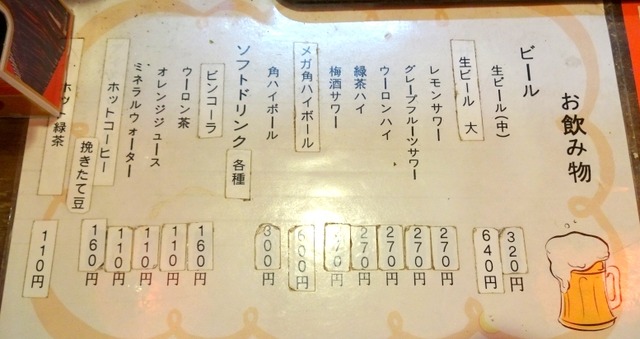 お飲み物
ビール
生ビール(中)
320円
生ビール 大
640円
レモンサワー
270円
グレープフルーツサワー
270円
ウーロンハイ
270円
緑茶ハイ
270円
梅酒サワー
270円
メガ角ハイボール
600円
角ハイボール
300円
ソフトドリンク 各種
ビンコーラ
160円
ウーロン茶
110円
オレンジジュース
110円
ミネラルウォーター
110円
ホットコーヒー
挽きたて豆
160円
ホット緑茶
110円